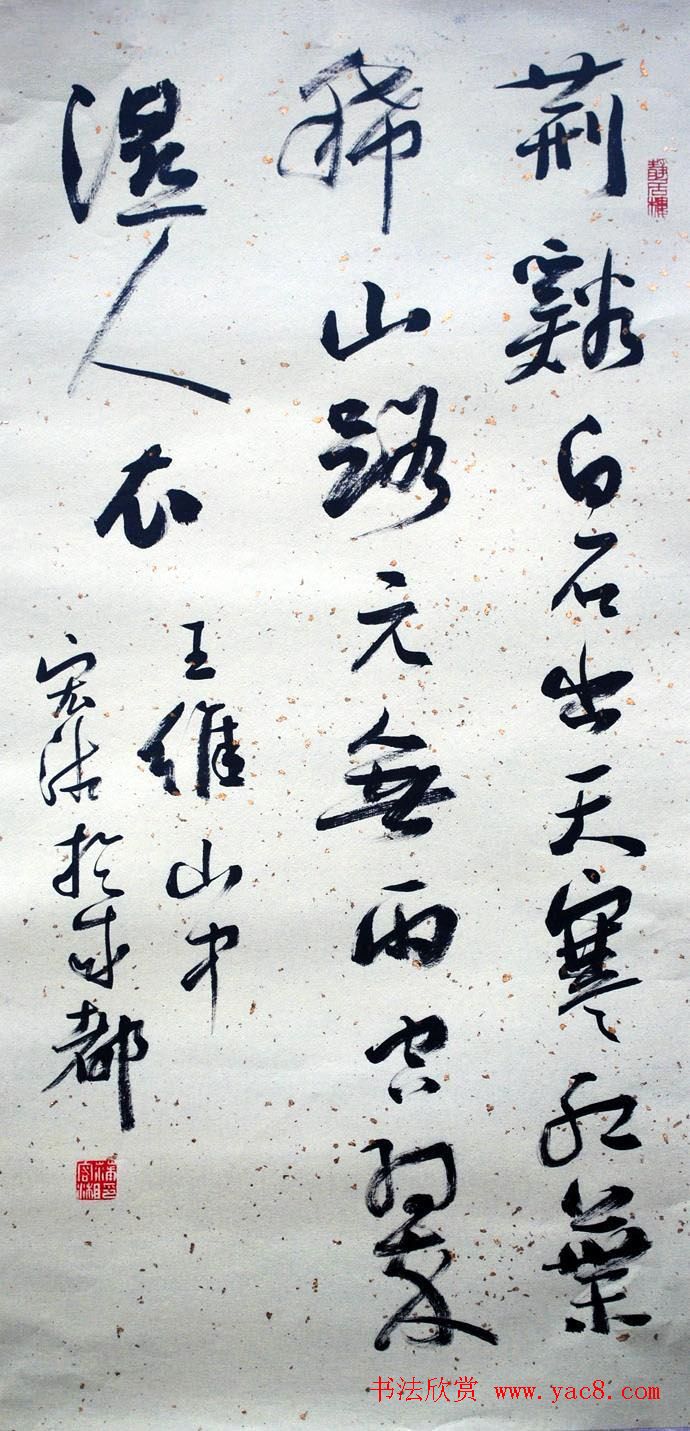 荆谿白石出天寒红葉
稀山路元無雨空翠
濕人衣
王維山中
宏湘於成都
书法欣赏 www.yac8.com